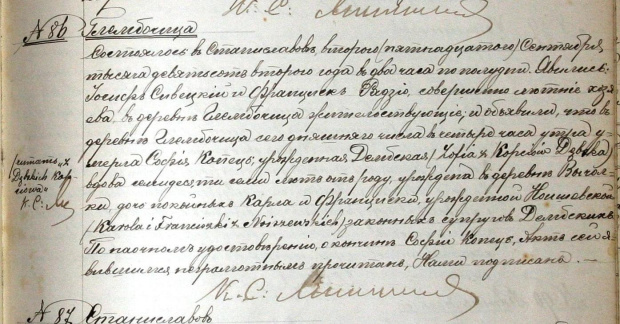 К. С.
№ 86 Глембочица
Состоялось въ Станиславовѣ, второго /пятнадцатого/ Сентября
тысяча девятьсотъ второго года въ два часа по полудни. Явились:
Іосифъ Сивецкій и Францискъ Радзіо, совершеннолѣтніе хозя-
ева въ деревнѣ Глембочица жительствующіе, и объявили, что въ
деревнѣ Глембочица сего дняшняго числа въ четыре часа утра у-
мерла Софія Копецъ, урожденная Дембская /Zofia z
вдова семидесяти семи лѣтъ отъ роду, урождена въ деревнѣ
ки, дочь покойныхъ Карла и Франциски, урожденной Ноишевской
/Karola i Franciszki z Noiszewskich/ законныхъ супруговъ Дембскихъ.
По наочномъ удостовѣреніи, о кончинѣ Софіи Копецъ, Актъ сей я-
вившимся неграмотнымъ прочитанъ, Нами подписанъ. —
читать „z
Dębskich
К. С.
К. С.
№ 87 Станиславовъ